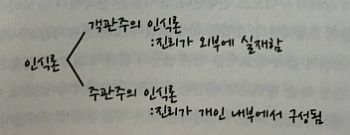 객관주의 인식론
:진리가 외부에 실재함
인식론
주관주의 인식론
:진리가 개인 내부에서 구성됨